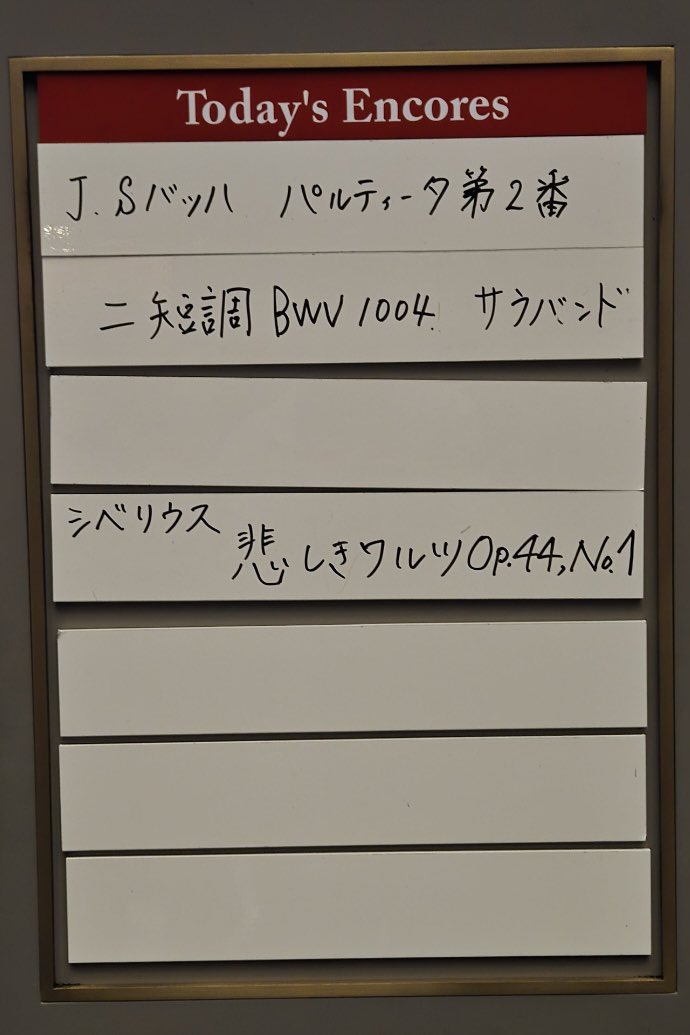 Today's Encores
J. Sバッハ パルティータ第2番
ニ短調 BWV 1004. サラバンド
シベリウス
悲しきワルツ Op.44, No.1